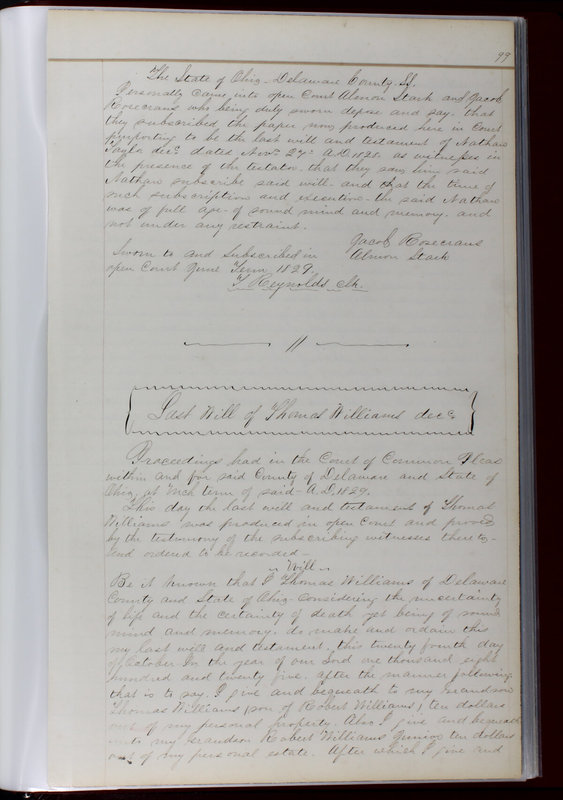 99
The State of Ohio - Delaware County Ss.
Personally came into open Court Almon Stark and Jacob
Rosecrans who being duly sworn depose and say, that
they subscribed the paper now produced here in Court
purporting to be the last will and testament of Nathan
Taylor decd dated Novr 27th A.D. 1828. as witnesses in
the presence of the testator. that they saw him said
Nathan subscribe said will. and that the time of
such subscription and execution - the said Nathan
was of full age. of sound mind and memory. and
not under any restraint.
Jacob Rosecrans
Sworn to and subscribed in Almon Stark
open Court June Term 1829.
T Reynolds Clk.
Last Will of Thomas Williams decd
Proceedings had in the Court of Common Pleas
within and for said County of Delaware and State of
Ohio, at term of said - A.D. 1829.
This day the last will and testament of Thomas
Williams was produced in open Court and proved
by the testimony of the subscribing witnesses thereto -
and ordered to be recorded -
"Will"
Be it known that I Thomas Williams of Delaware
County and State of Ohio - Considering the uncertainty
of life and the certainty of death yet being of sound
mind and memory. do make and ordain this
my last will and testament. this twenty fourth day
of October in the year of our Lord one thousand eight
hundred and twenty five. after the manner following
that is to say. I give and bequeath to my grandson
Thomas Williams (son of Robert Williams) ten dollars
out of my personal property. Also I give and bequeath
unto my grandson Robert Williams Junior ten dollars
out of my personal estate. After which I give and